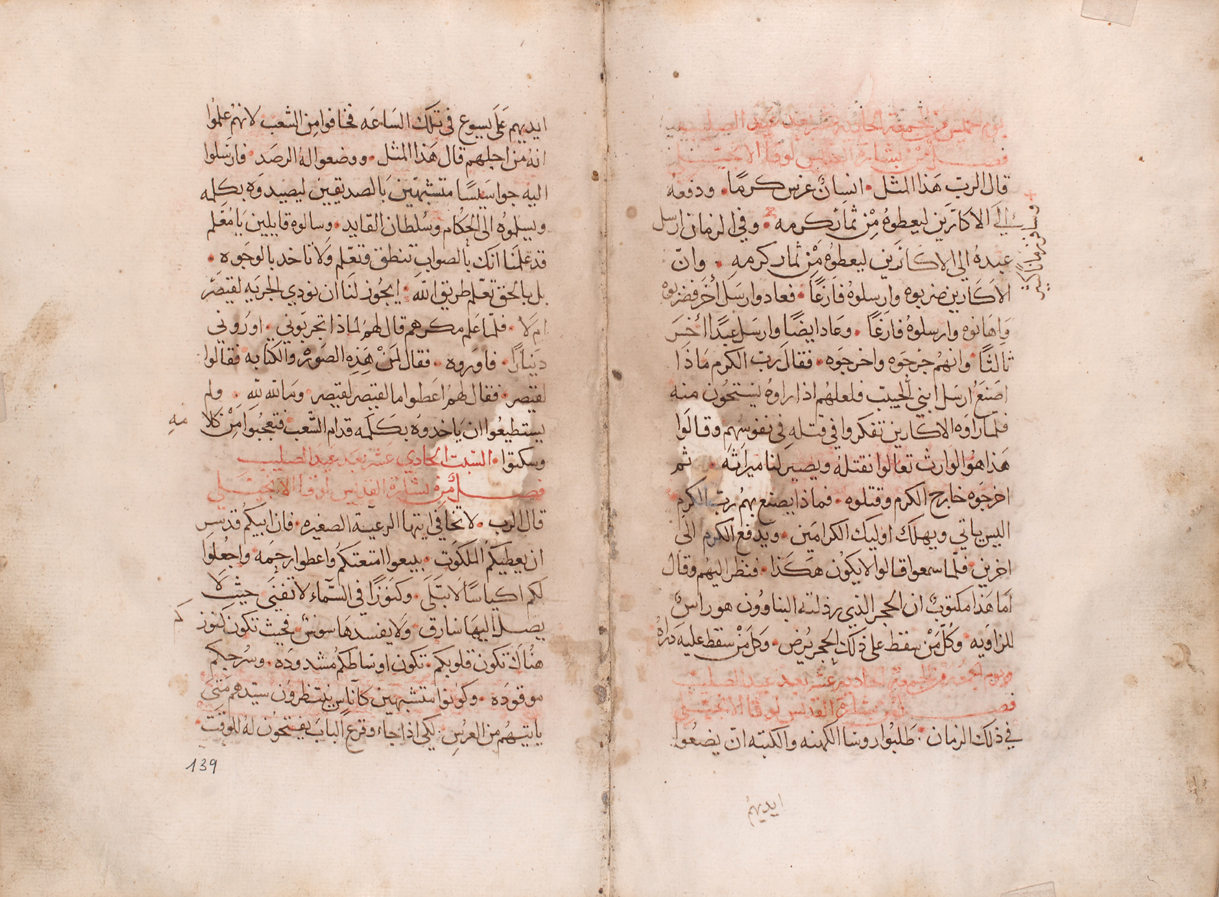 يوم الخميس من الجمعة الحادية عشر بعد عيد الصليب
فصل من بشارة القديس لوقا الانجيلي
قال الرب هذا المثل • انسان غرس كرما • ودفعه
الى الاكارين ليعطوه من ثمار كرمه • وفي الزمان ارسل
عبده الى الاكارين ليعطوه من ثمار كرمه • وان
الاكارين ضربوه وارسلوه فارغا • فعاد وارسل اخر فضربوه
واهانوه وارسلوه فارغا • وعاد ايضا وارسل عبدا اخر
ثالثا • وانهم جرحوه واخرجوه • فقال رب الكرم ماذا
اصنع ارسل ابني الحبيب فلعلهم اذا راوه يستحيون منه
فلما راوه الاكارين تفكروا في قتله في نفوسهم وقالوا
هذا هو الوارث تعالوا نقتله ويصير لنا ميراثه • ثم
اخرجوه خارج الكرم وقتلوه • فماذا يصنع بهم رب الكرم
اليس ياتي ويهلك اوليك الكرامين • ويدفع الكرم الى
اخرين • فلما سمعوا قالوا لا يكون هكذا • فنظر اليهم وقال
اما هذا مكتوب ان الحجر الذي رذلته البناوون هو راس
للزاويه • وكل من سقط على ذلك الحجر يرض • وكل من سقط عليه ذراه
ويوم الجمعة من الجمعة الحادية عشر بعد عيد الصليب
فصل من بشارة القديس لوقا الانجيلي
في ذلك الزمان • طلبوا روسا الكهنه والكتبه ان يضعوا
ايديهم
ايديهم على يسوع في تلك الساعه فخافوا من الشعب لانهم علموا
انه من اجلهم قال هذا المثل • ووضعوا له الرصد • فارسلوا
اليه جواسيسا متشبهين بالصديقين ليصيدوه بكلمه
ويسلموه الى الحكام وسلطان القايد • وسالوه قايلين يا معلم
قد علمنا انك بالصواب تنطق وتعلم ولا تاخد بالوجوه •
بل بالحق تعلم طريق الله • ايجوز لنا ان نودي الجزيه لقيصر
ام لا • فلما علم مكرهم قال لهم لماذا تجربوني • اوروني
دينارا • فاوروه • فقال لمن هذه الصوره والكتابه فقالوا
لقيصر • فقال لهم اعطوا ما لقيصر لقيصر • وما لله لله • ولم
يستطيعوا ان ياخدوه بكلمه قدام الشعب • فتعجبوا من كلا مه
وسكتوا • السبت الحادي عشر بعد عيد الصليب
فصل من بشارة القديس لوقا الانجيلي
قال الرب • لا تخافي ايتها الرعية الصغيره • فان ابيكم قد سر
ان يعطيكم الملكوت • بيعوا امتعتكم واعطوا رحمه • واجعلوا
لكم اكياسا لا تبتلى • وكنوزا في السماء لا تفنى • حيث لا
يصل اليها سارق • ولا يفسدها سوس • فحيث تكون كنوز كم
هناك تكون قلوبكم • تكون اوساطكم مشدوده • وسرجكم
موقوده • وكونوا متشبهين كاناس ينتظرون سيدهم متى
ياتيهم من العرس • لكي اذا جاء وقرع الباب يفتحون له للوقت •
139